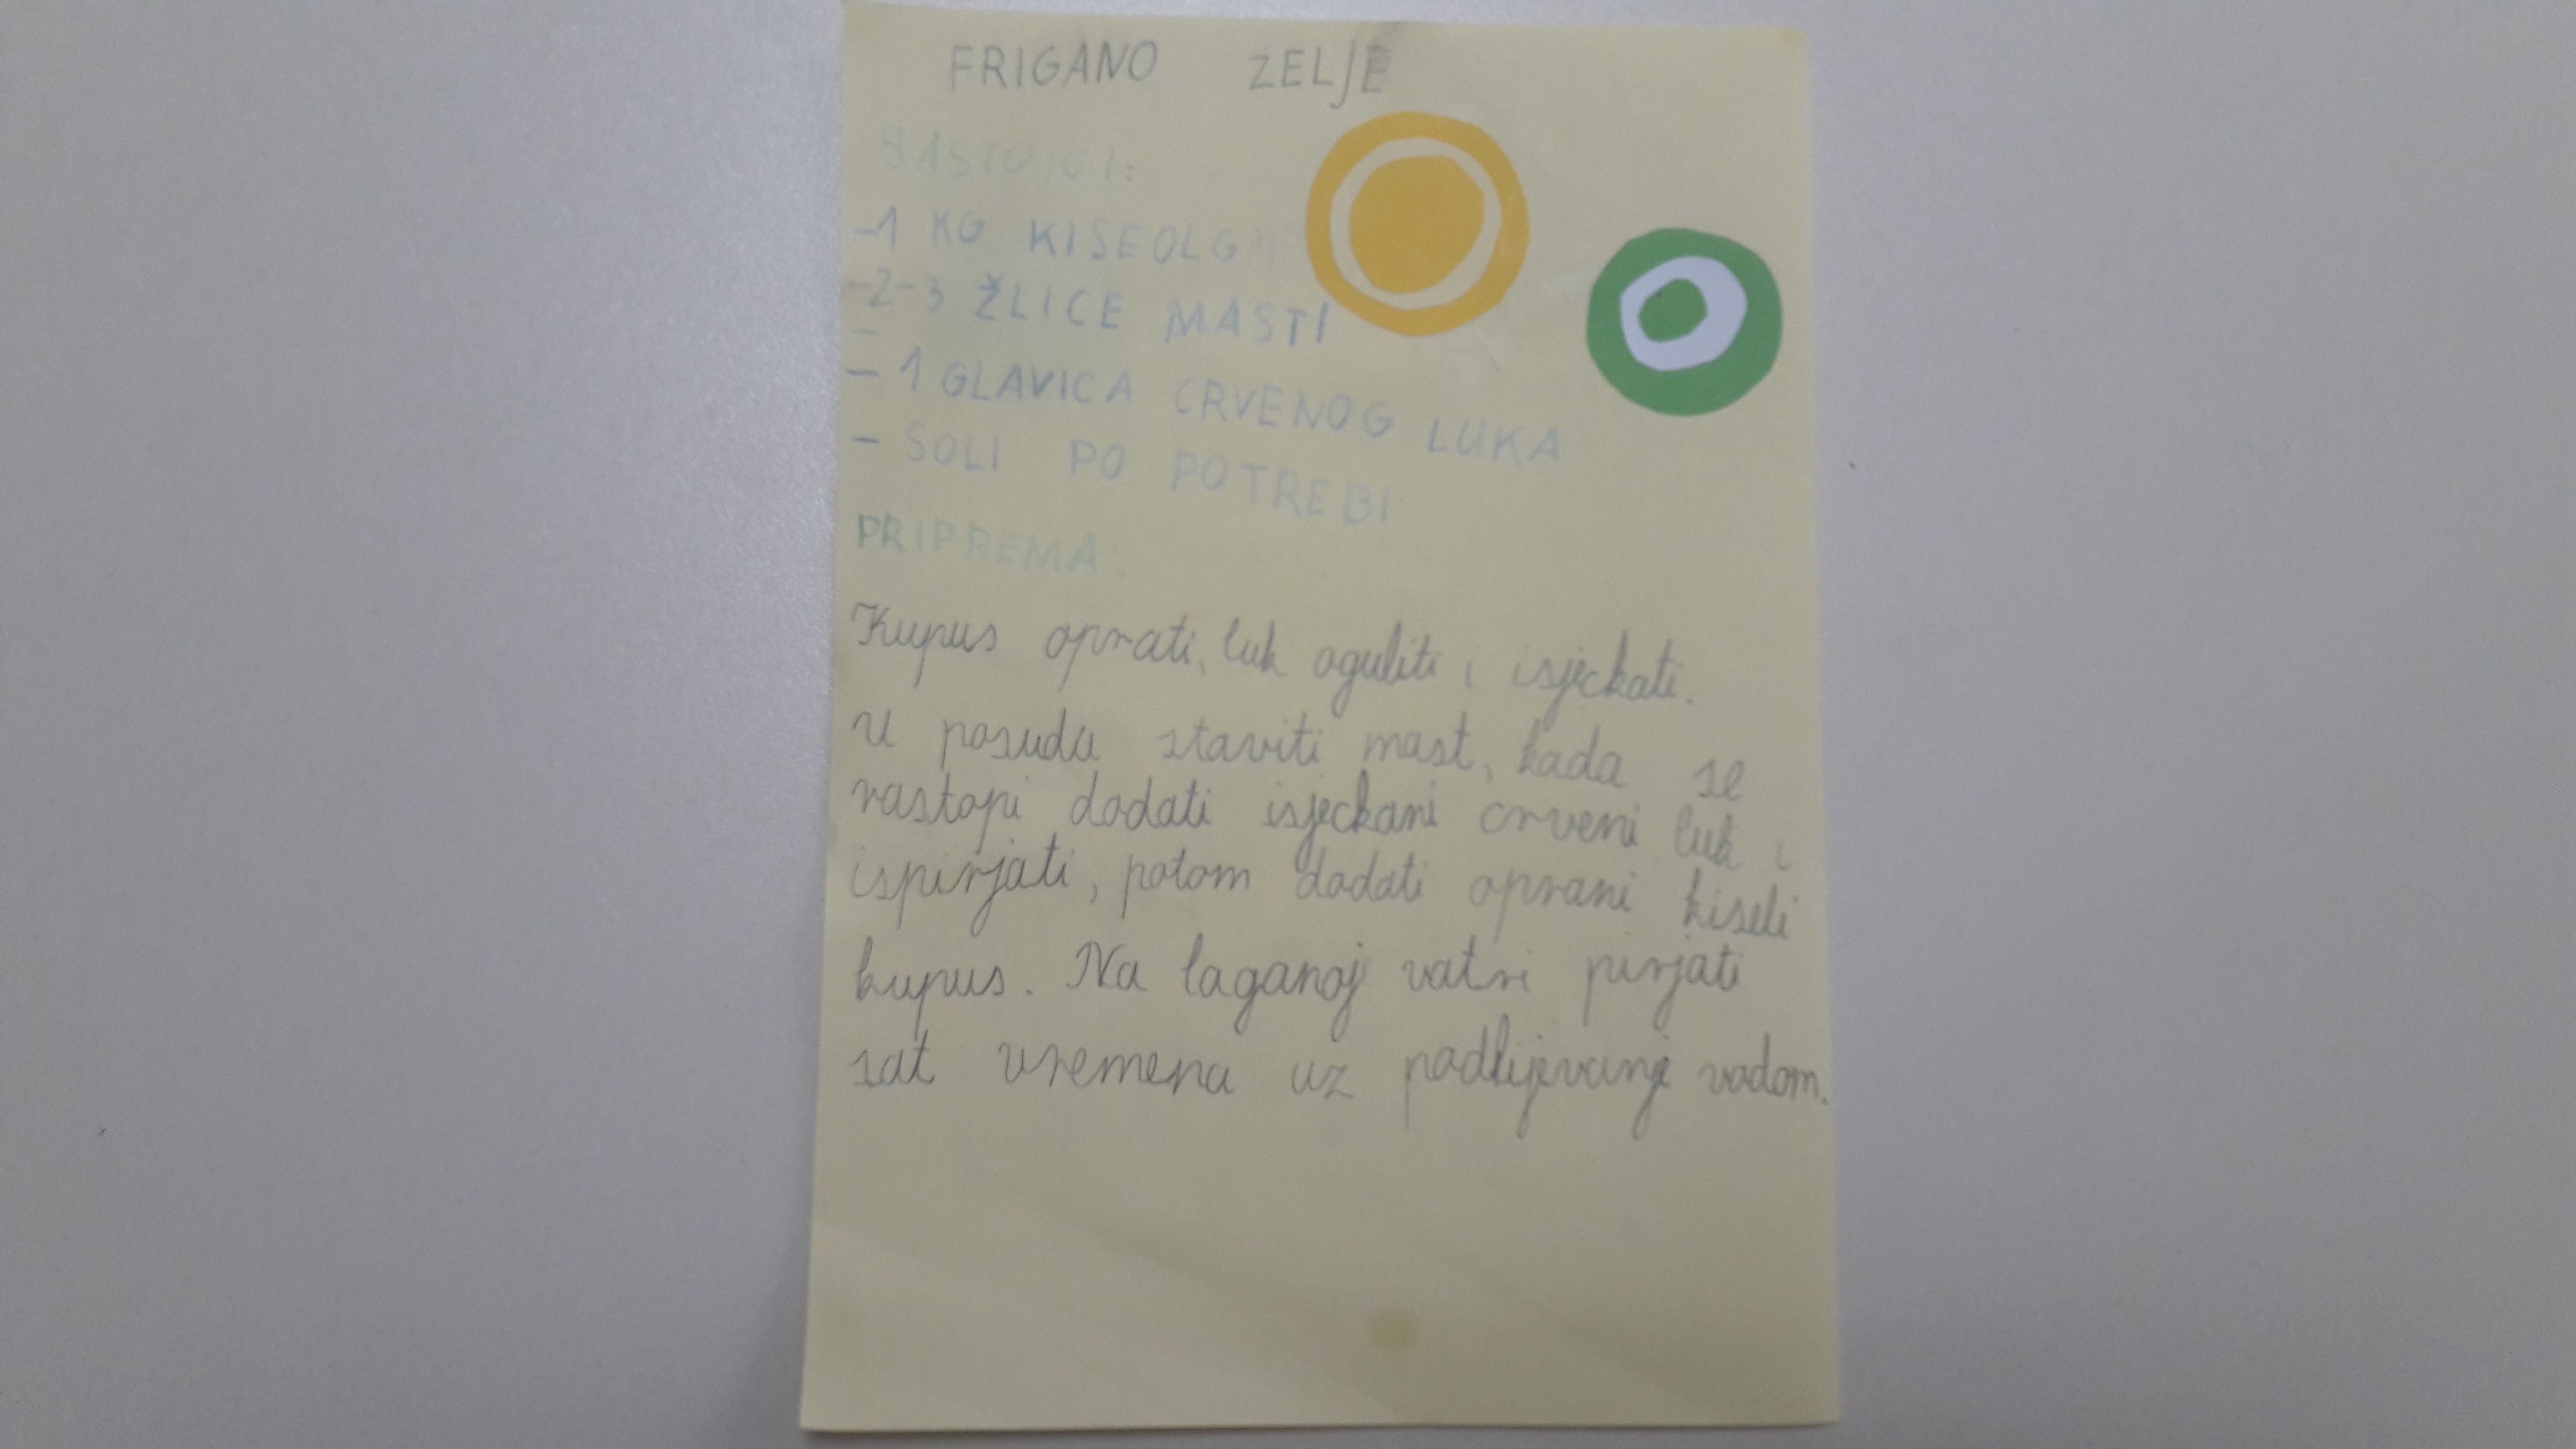 FRIGANO ZELJE
SASTOJCI:
-1 KG KISEOLG
-2-3 ŽLICE MASTI
-
- 1 GLAVICA CRVENOG LUKA
- SOLI PO POTREBI
PRIPREMA:
Kupus oprati, luk oguliti i isjeckati.
U posudu staviti mast, kada se
rastopi dodati isjeckani crveni luk i
ispirjati, potom dodati oprani kiseli
kupus. Na laganoj vatri pirjati
sat vremena uz podlijevanje vodom.